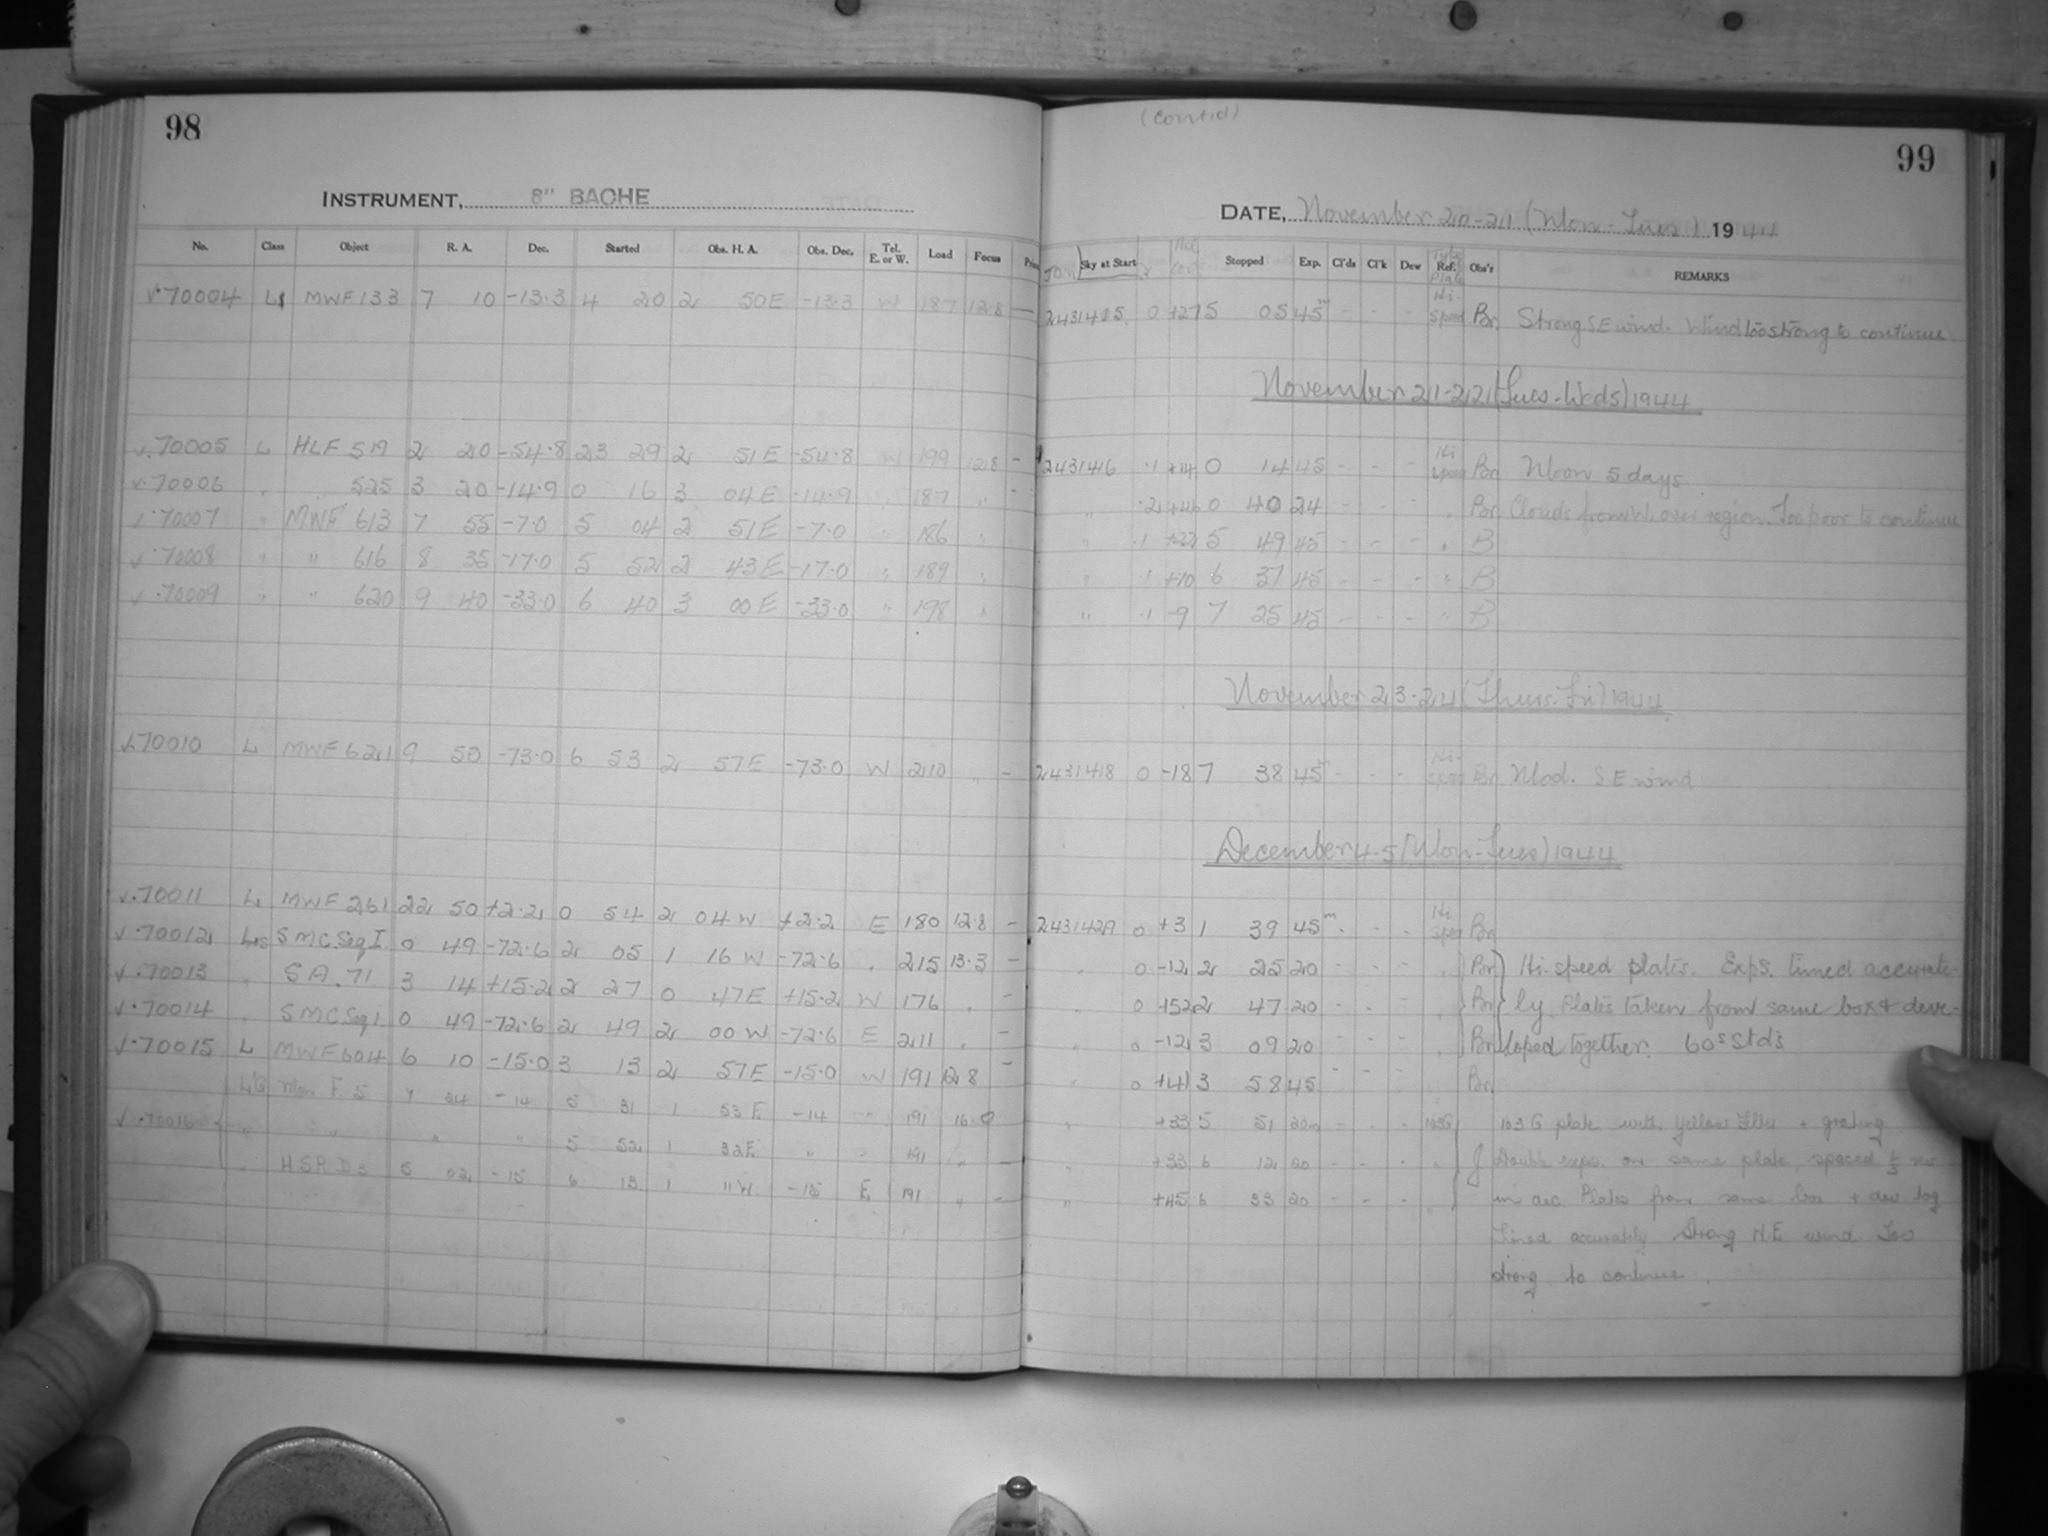 98
INSTRUMENT, 8" BACHE
No. Class Object R. A. Dec. Started Obs. H. A. Obs. Dec. Tel. E. or W. Load Focus
70004 L MWF 133 7 10 -13.3 4 20 2 50E -13.3 W 187 12.8 —
70005 L HLF 519 2 20 -54.8 23 29 2 51E -54.8 W 199 12.8 -
70006 " " 525 3 20 -14.9 0 16 3 04E -14.9 " 187 " -
70007 " MWF 613 7 55 -7.0 5 04 2 51E -7.0 " 186 "
70008 " " 616 8 35 -17.0 5 52 2 43E -17.0 " 189 "
70009 " " 620 9 40 -33.0 6 40 3 00E -33.0 " 198 "
70010 L MWF 621 9 50 -73.0 6 53 2 57E -73.0 W 210 " -
70011 L MWF 261 22 50 +2.2 0 54 2 04W +2.2 E 180 12.8 -
70012 LS SMC Seq I 0 49 -72.6 2 05 1 16W -72.6 " 215 13.3 -
70013 " S A. 71 3 14 +15.2 2 27 0 47E +15.2 W 176 " -
70014 " SMC Seq I 0 49 -72.6 2 49 2 00W -72.6 E 211 " -
70015 L MWF 604 6 10 -15.0 3 13 2 57E -15.0 W 191 12.8 -
Mon F. 5 7 24 -14 5 31 1 53E -14 " 191 16.0
70016 " " " " 5 52 1 32E " " 191 "
" 5 02 -15 6 13 1 11W -15 E 191 " -
(Cont'd)
99
DATE, November 20-21 (Mon-Tues) 1944
Sky at Start Stopped Exp. Cl'ds Cl'k Dew Type Ref. Plate Obs'r REMARKS
2431415 0 +27 5 05 45m - - - Hi-Speed Br. Strong SE wind. Wind too strong to continue
November 21-22 (Tues-Weds) 1944
2431416 .1 +14 0 14 45 - - - Hi Speed Br Moon 5 days
" .2 +46 0 40 24 - - - " Br Clouds from W. over region. Too poor to continue
" .1 +22 5 49 45 - - - " B
" .1 +10 6 37 45 - - - " B
" .1 -9 7 25 45 - - - " B
November 23-24 (Thurs-Fri) 1944
2431418 0 -18 7 38 45m - - - Hi-Speed Br Mod. SE wind
December 4-5 (Mon-Tues) 1944
2431429 0 +3 1 39 45m - - - Hi Speed Br
" 0 -12 2 25 20 - - - " Br Hi-speed plates. Exps. timed accurate-
" 0 +52 2 47 20 - - - " Br ly. Plates taken from same box & deve-
" 0 -12 3 09 20 - - - " Br loped together. 60s Stds
" 0 +41 3 58 45 - - - Br
" +33 5 51 20m - - - 103G 103G plate with yellow filter + grating
" +33 6 12 20 - - - " J Double expo. on same plate, spaced
" +45 6 33 20 - - - " in dec. Plates from same box + dev tog
Timed accurately Strong N.E wind Too
strong to continue.